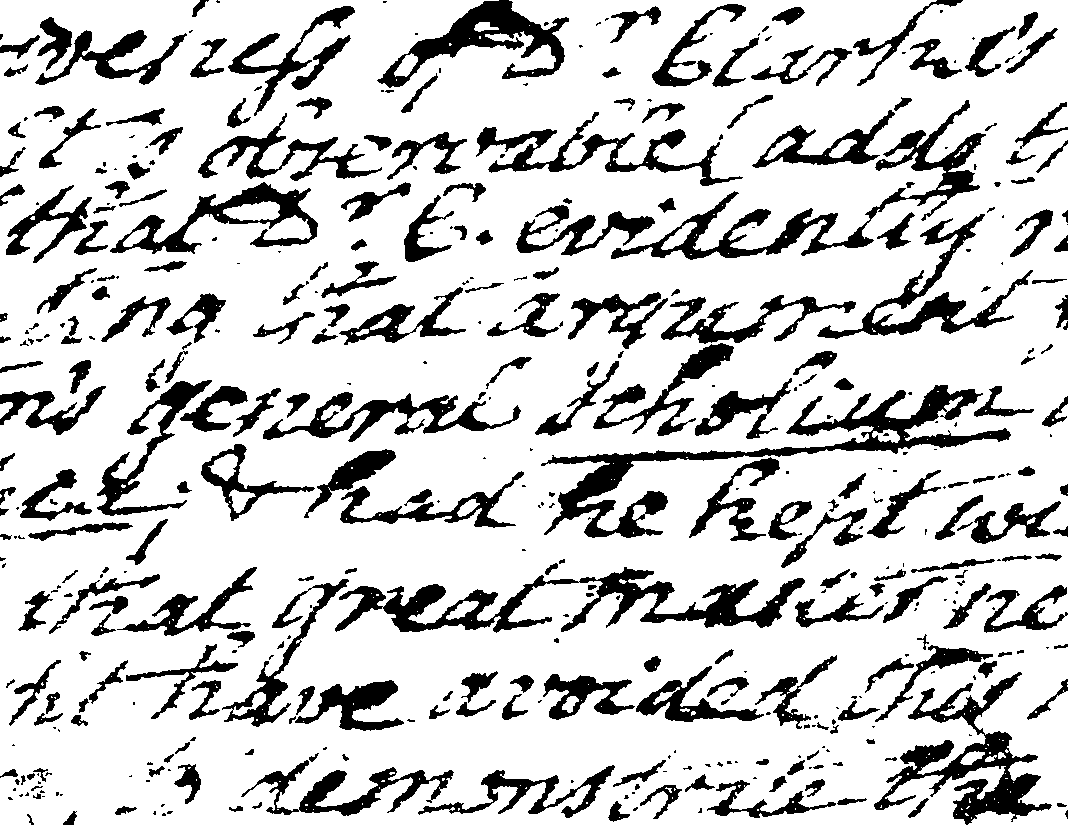 iveness of Dr. Clarke's
It is observable (adds th
that Dr. C. evidently
ting that argument
n's general Scholium
& had he kept wi
that great master ne
ht have avoided this
to demonstrate the